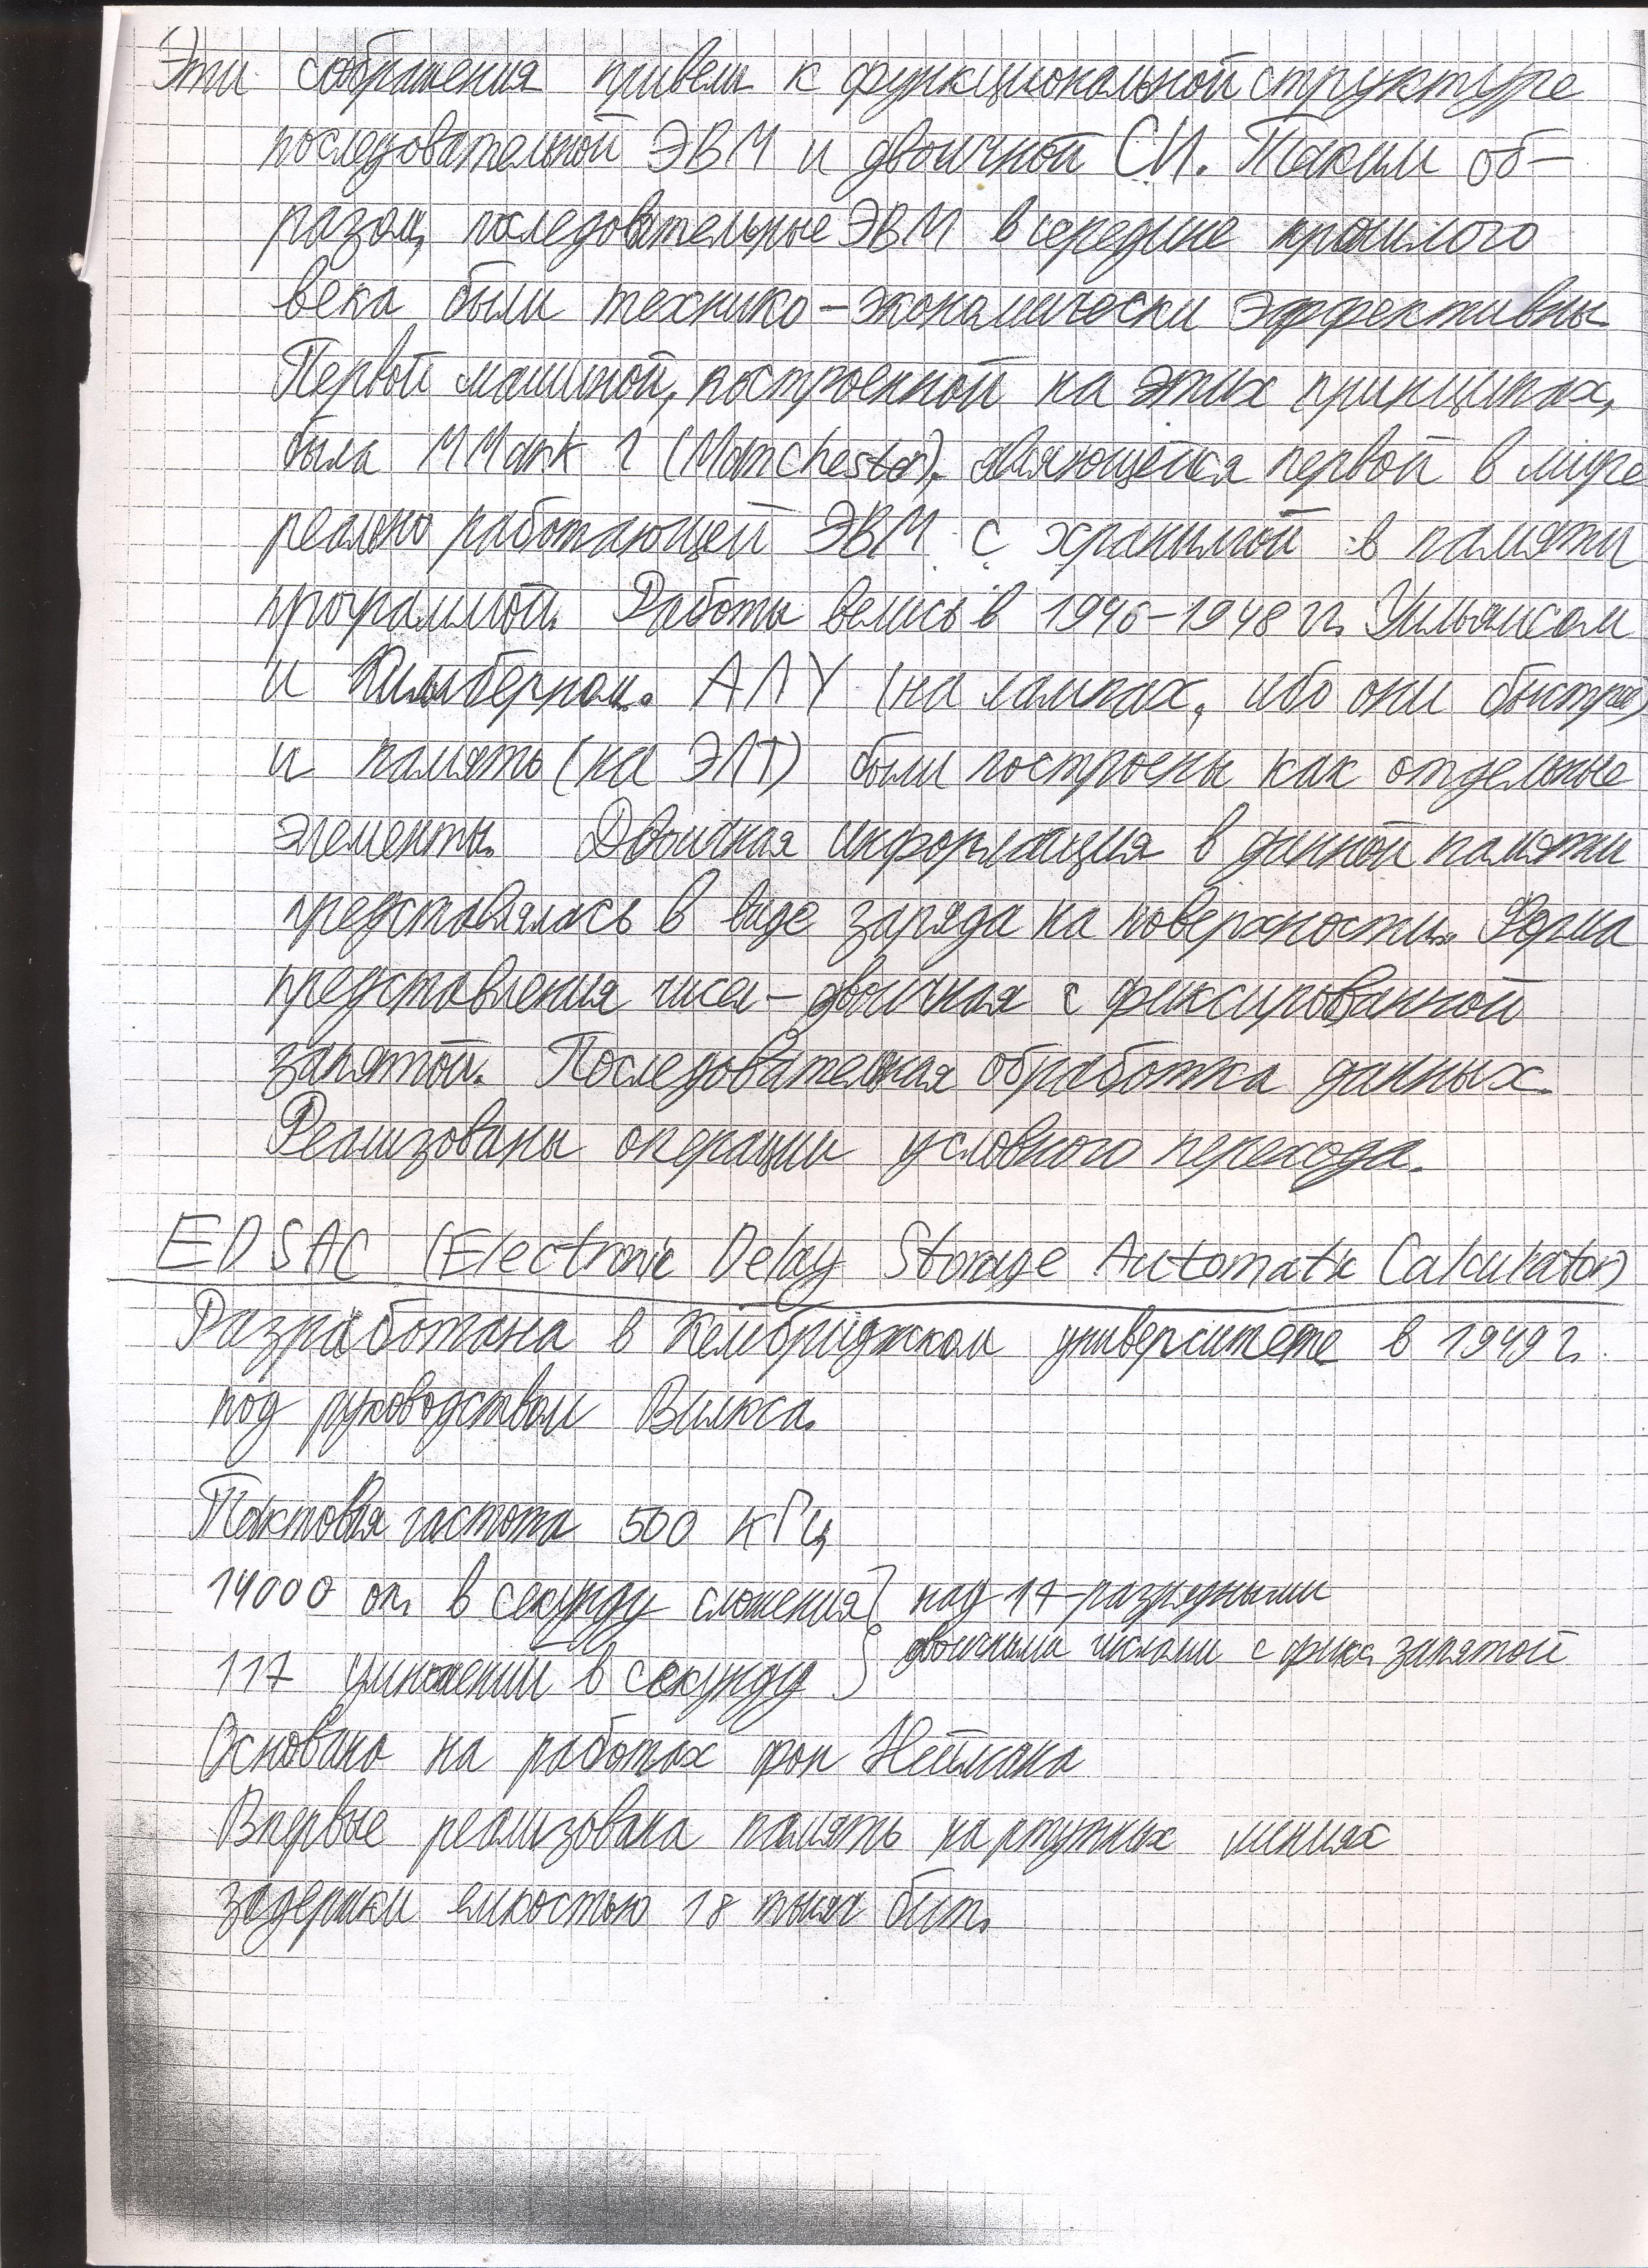 Эти соображения привели к функциональной структуре
последовательной ЭВМ и двоичной СИ. Таким об-
разом, последовательные ЭВМ в середине прошлого
века были технико-экономически эффективны.
Первой машиной, построенной на этих принципах,
была MMark 1 (Manchester), являющейся первой в мире
реально работающей ЭВМ с хранимой в памяти
программой. Работы велись в 1946-1948 гг. Уильямсом
и Килберном. АЛУ (на лампах, ибо они быстрые)
и память (на ЭЛТ) были построены как отдельные
элементы. Двоичная информация в данной памяти
представлялась в виде заряда на поверхности. Форма
представления чисел - двоичная с фиксированной
запятой. Последовательная обработка данных.
Реализованы операции условного перехода.
EDSAC (Electronic Delay Storage Automatic Calculator)
Разработана в Кембриджском университете в 1949 г.
под руководством Вилкса.
Тактовая частота 500 кГц
14000 оп. в секунду сложения } над 17-разрядными
117 умножений в секунду } двоичными числами с фикс. запятой
Основано на работах фон Неймана
Впервые реализована память на ртутных линиях
задержки емкостью 18 тысяч бит.